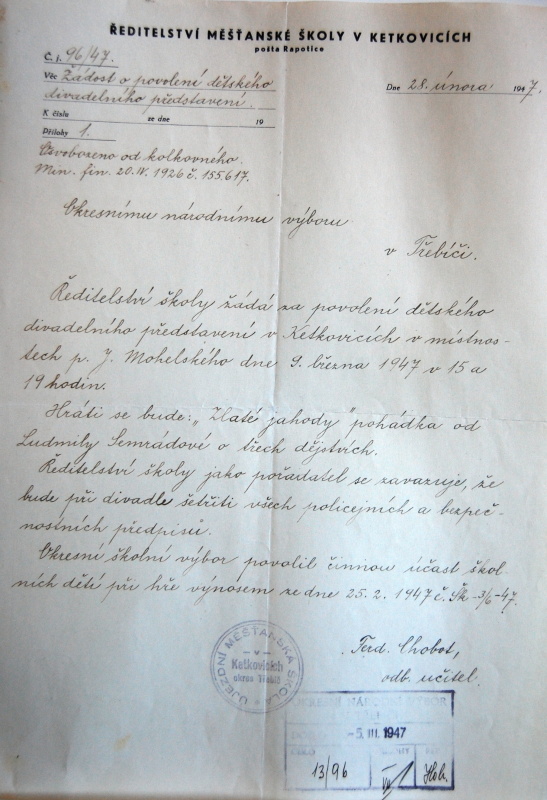 ŘEDITELSTVÍ MĚŠŤANSKÉ ŠKOLY V KETKOVICÍCH
pošta Rapotice
Č. j. 96/47.
Dne 28. února 1947.
Věc Žádost o povolení dětského
divadelního představení.
K číslu ze dne 19
Přílohy 1.
Osvobozeno od kolkovného.
Min. fin. 20. IV. 1926 č. 155.617.
Okresnímu národnímu výboru
v Třebíči.
Ředitelství školy žádá za povolení dětského
divadelního představení v Ketkovicích v místnos-
tech p. J. Mohelského dne 9. března 1947 v 15 a
19 hodin.
Hráti se bude: „Zlaté jahody" pohádka od
Ludmily Semrádové o třech dějstvích.
Ředitelství školy jako pořadatel se zavazuje, že
bude při divadle šetřiti všech policejních a bezpeč-
nostních předpisů.
Okresní školní výbor povolil činnou účast škol-
ních dětí při hře výnosem ze dne 25. 2. 1947 č. Šk -3/6-47.
Ferd. Chobot,
odb. učitel.
ÚJEZDNÍ MĚŠŤANSKÁ ŠKOLA
- v -
Ketkovicích
okres Třebíč
OKRESNÍ NÁRODNÍ VÝBOR
-5. III. 1947
13/96